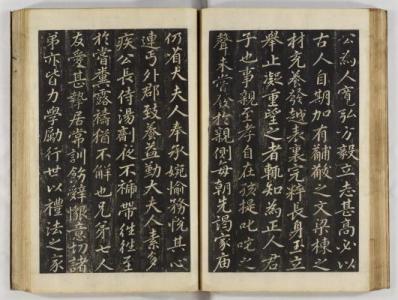 公為人寬弘方毅立志甚髙必以
古人自期加有黼黻之文梁棟之
材充養發越表裏完粹長身玉立
舉止凝重望之者輒知為正人君
子也事親至孝自在孩提叱咤之
聲未嘗發於親側每朝先謁家廟
仍省大夫人奉承婉愉務悦其心
連丐外郡致養益勤大夫人素多
疾公長侍湯劑夜不褫帶徃徃至
於嘗糞露禱猶不懈也兄弟七人
友愛甚篤居常訓飭辭懇意切諸
弟亦皆力學勵行世以禮法之家